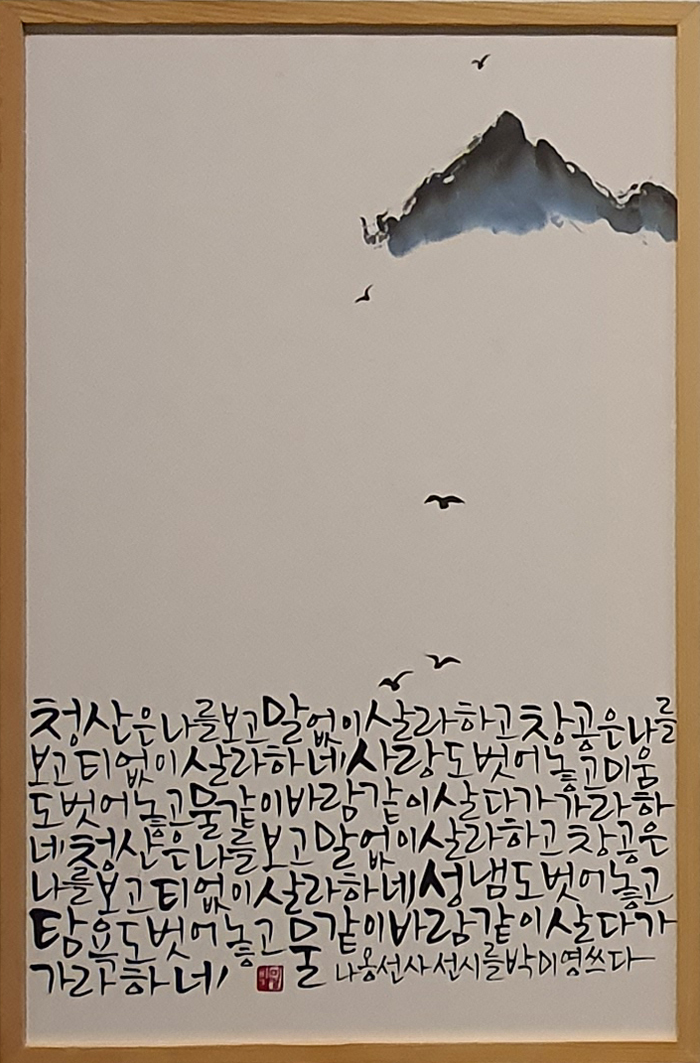 청산은 나를 보고 말 없이 살라하고 창공은 나를
보고 티 없이 살라하네 사랑도 벗어 놓고 미움
도 벗어 놓고 물같이 바람같이 살다가 가라하
네 청산은 나를 보고 말 없이 살라하고 창공은
나를 보고 티 없이 살라하네 성냄도 벗어 놓고
탐욕도 벗어 놓고 물같이 바람같이 살다가
가라하네
나옹선사 선시를 박미영 쓰다